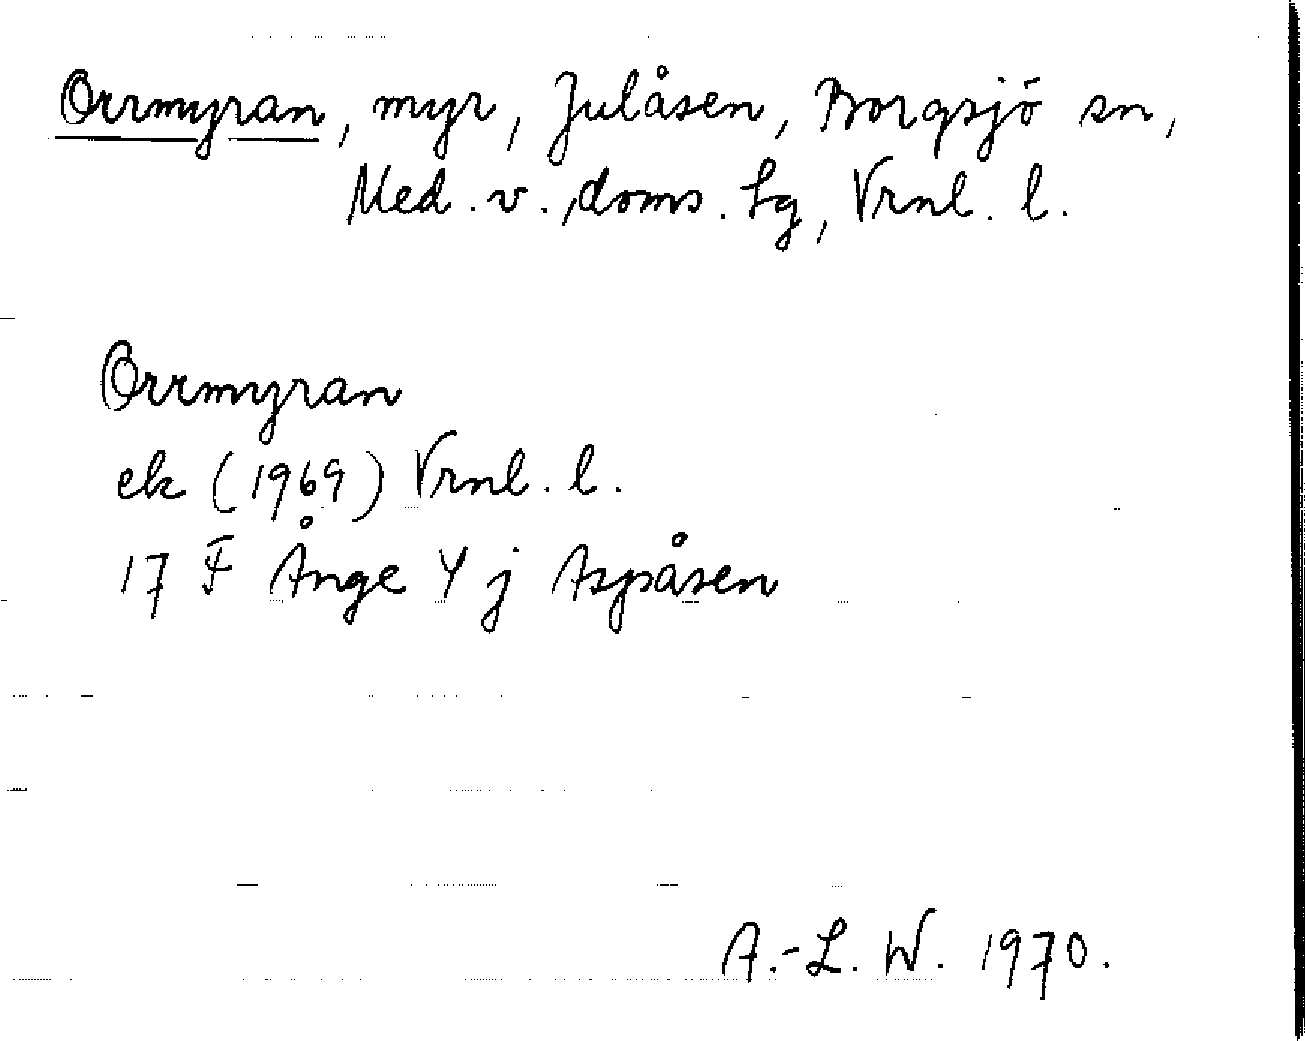 Orrmyran, myr, Julåsen, Borgsjö sn,
Med. v. doms. lg, Vrnl. l.
Orrmyran
ek (1969) Vrnl. l.
17 F Ånge Y j Aspåsen
A.-L. W. 1970.